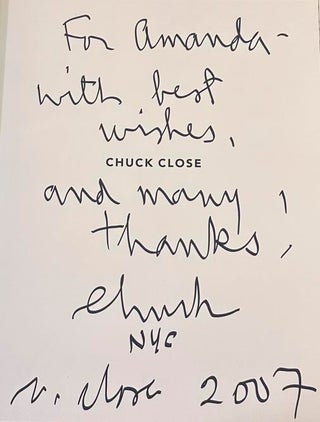 For Amanda -
with best
wishes,
CHUCK CLOSE
and many
thanks,
Chuck
NYC
Close 2007